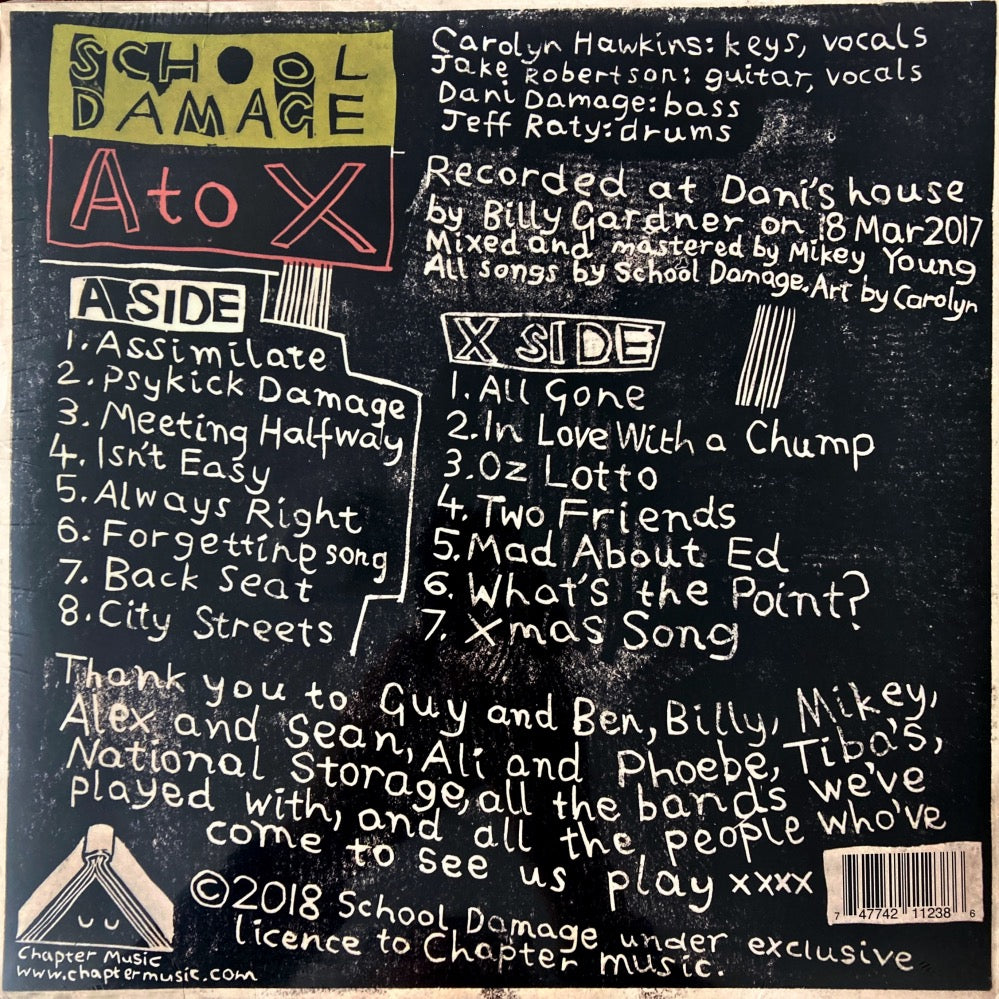 SCHOOL
DAMAGE
A to X
Carolyn Hawkins: keys, vocals
Jake Robertson: guitar, vocals
Dani Damage: bass
Jeff Raty: drums
Recorded at Dani's house
by Billy Gardner on 18 Mar 2017
Mixed and mastered by Mikey Young
All songs by School Damage. Art by Carolyn
A SIDE
1. Assimilate
2. Psykick Damage
3. Meeting Halfway
4. Isn't Easy
5. Always Right
6. Forgetting song
7. Back Seat
8. City Streets
X SIDE
1. All Gone
2. In Love With a Chump
3. Oz Lotto
4. Two Friends
5. Mad About Ed
6. What's the Point?
7. Xmas Song
Thank you to Guy and Ben, Billy, Mikey,
Alex and Sean, Ali and Phoebe, Tiba's,
National Storage, all the bands we've
played with, and all the people who've
come to see us play xxxx
©2018 School Damage under exclusive
licence to Chapter Music.
Chapter Music
www.chaptermusic.com
7 47742 11238 6